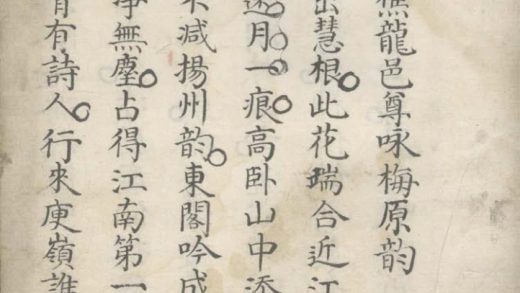 龍邑尊咏梅原韵
慧根此花端合近江
月一痕高卧山中添
減揚州韵東閣吟成
無塵占得江南第一
有詩人行來庾嶺誰